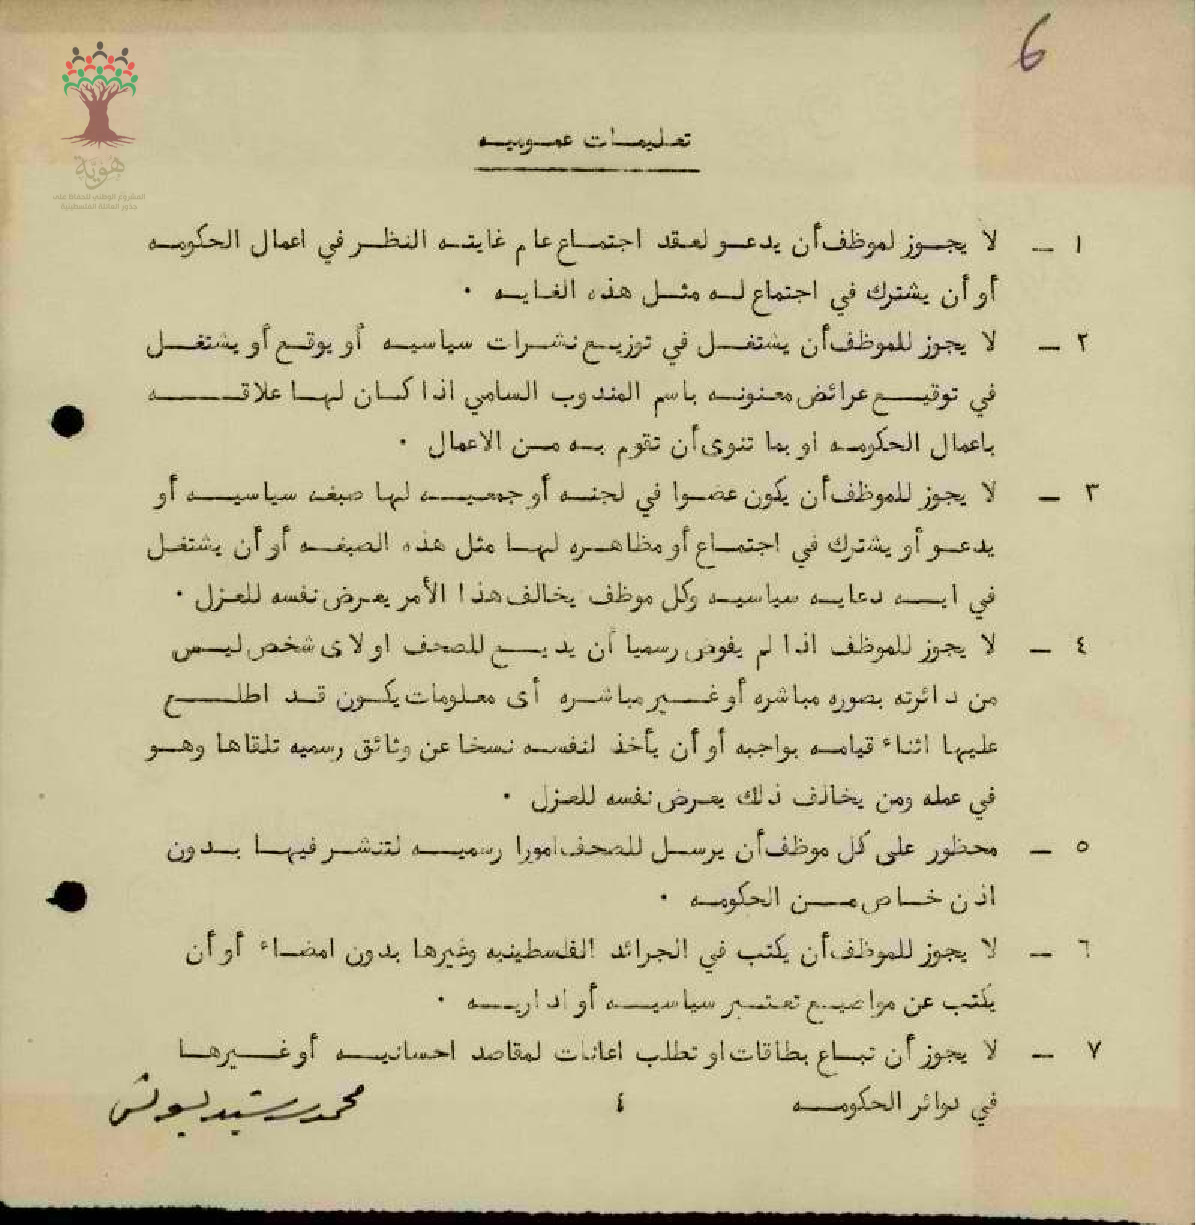 6
هوية
المشروع الوطني للحفاظ على
جذور العائلة الفلسطينية
تعليمات عموميه
١ – لا يجوز لموظف أن يدعو لعقد اجتماع عام غايته النظر في اعمال الحكومه
أو أن يشترك في اجتماع له مثل هذه الغايه ٠
٢ – لا يجوز للموظف أن يشتغل في توزيع نشرات سياسيه أو يوقع أو يشتغل
في توقيع عرائض معنونه باسم المندوب السامي اذا كان لها علاقه
باعمال الحكومه او بما تنوى أن تقوم به من الاعمال ٠
٣ – لا يجوز للموظف أن يكون عضوا في لجنه أو جمعيه لها صبغه سياسيه أو
يدعو أو يشترك في اجتماع أو مظاهره لها مثل هذه الصبغه أو أن يشتغل
في ايه دعايه سياسيه وكل موظف يخالف هذا الأمر يعرض نفسه للعزل ٠
٤ – لا يجوز للموظف اذا لم يفوض رسميا أن يذيع للصحف او لاى شخص ليس
من دائرته بصوره مباشره أو غير مباشره أى معلومات يكون قد اطلع
عليها اثناء قيامه بواجبه أو أن يأخذ لنفسه نسخا عن وثائق رسميه تلقاها وهو
في عمله ومن يخالف ذلك يعرض نفسه للعزل ٠
٥ – محظور على كل موظف أن يرسل للصحف امورا رسميه لتنشر فيها بدون
اذن خاص من الحكومه ٠
٦ – لا يجوز للموظف أن يكتب في الجرائد الفلسطينيه وغيرها بدون امضاء أو أن
يكتب عن مواضيع تعتبر سياسيه أو اداريه ٠
٧ – لا يجوز أن تباع بطاقات او تطلب اعانات لمقاصد احسانيه أو غيرها
في دوائر الحكومه ٤ محمد رشيد